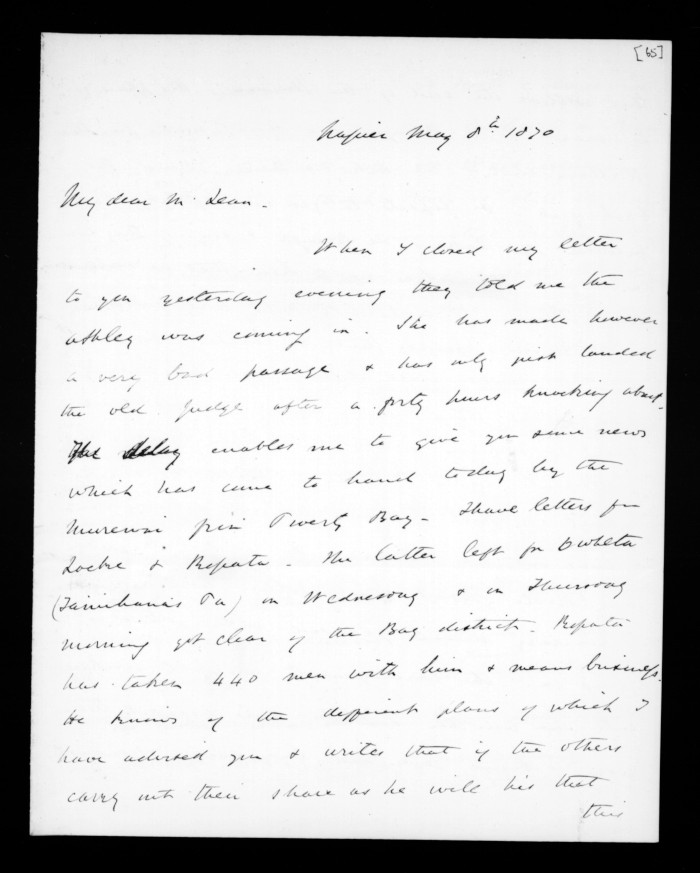 [65]
Napier May 8th 1870
My dear McLean -
When I closed my letter
to you yesterday evening they told me the
Ashley was coming in. She has made however
a very bad passage & has only just landed
the old Judge after a forty hours knocking about.
The delay enables me to give you some news
which has come to hand today by the
Murewai from Poverty Bay - I have letters fm
Locke & Ropata - The latter left for
on Wednesday & on Thursday
morning got clear of the Bay district. Ropata
has taken 440 men with him & means business.
He knows of the different plans of which I
have advised you & writes that if the others
carry out their share as he will his that
this